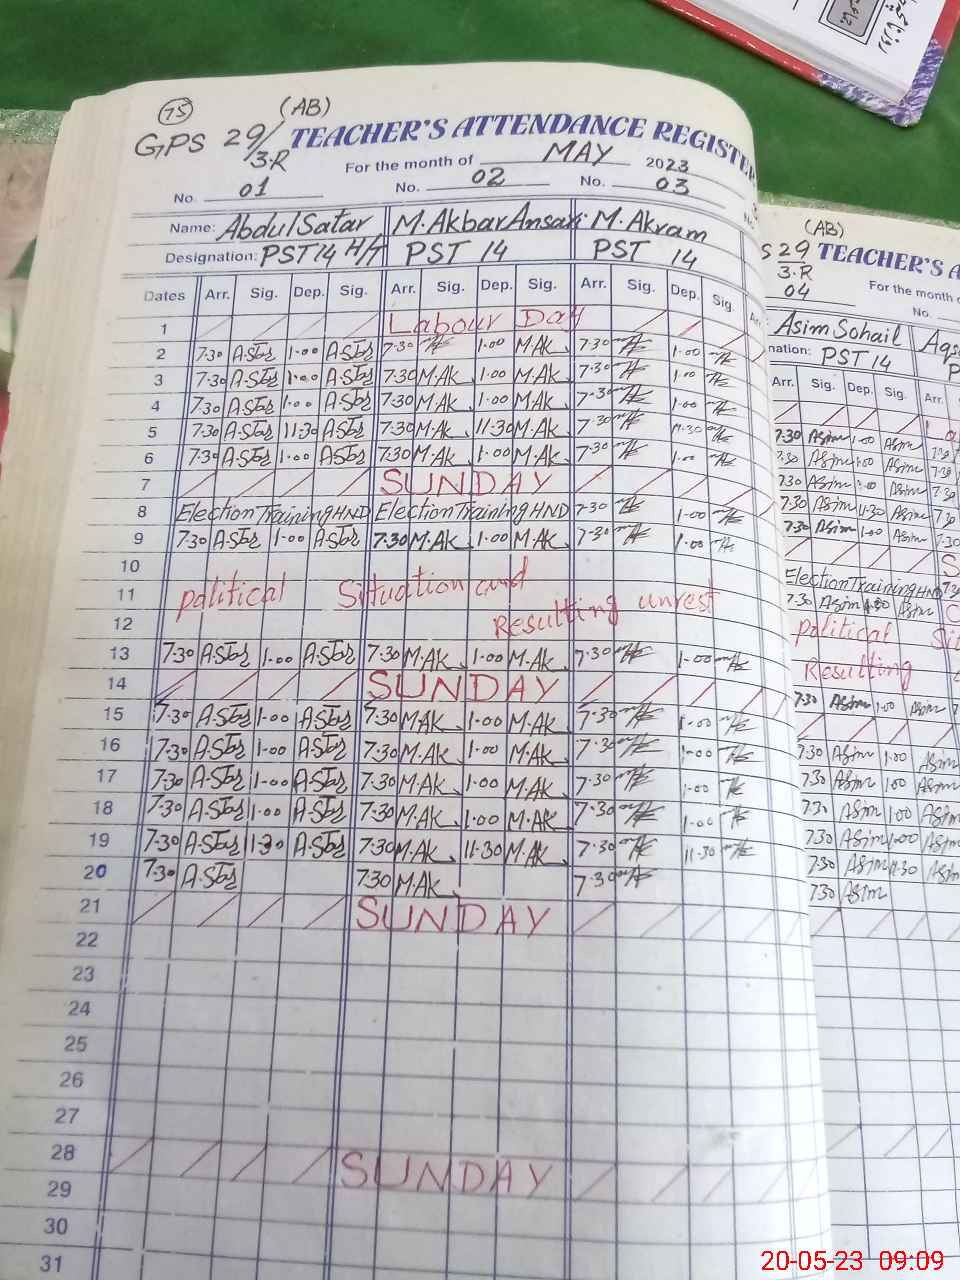 75
(AB)
GPS 29/3.R TEACHER'S ATTENDANCE REGISTE
For the month of MAY 2023
No. 01 No. 02 No. 03
Name: Abdul Satar M. Akbar Ansari M. Akram
Designation: PST 14 H/T PST 14 PST 14
Dates Arr. Sig. Dep. Sig. Arr. Sig. Dep. Sig. Arr. Sig. Dep. Sig.
1 Labour Day
2 7.30 A.Star 1.00 A.Star 7.30 1.00 M.AK 7.30 1.00
3 7.30 A.Star 1.00 A.Star 7.30 M.AK 1.00 M.AK 7.30 1.00
4 7.30 A.Star 1.00 A.Star 7.30 M.AK 1.00 M.AK 7.30 1.00
5 7.30 A.Star 11.30 A.Star 7.30 M.AK 11.30 M.AK 7.30 11.30
6 7.30 A.Star 1.00 A.Star 7.30 M.AK 1.00 M.AK 7.30 1.00
7 SUNDAY
8 Election Training HND Election Training HND 7.30 1.00
9 7.30 A.Star 1.00 A.Star 7.30 M.AK 1.00 M.AK 7.30 1.00
10
11 political Situation and
12 Resulting unrest
13 7.30 A.Star 1.00 A.Star 7.30 M.AK 1.00 M.AK 7.30 1.00
14 SUNDAY
15 7.30 A.Star 1.00 A.Star 7.30 M.AK 1.00 M.AK 7.30 1.00
16 7.30 A.Star 1.00 A.Star 7.30 M.AK 1.00 M.AK 7.30 1.00
17 7.30 A.Star 1.00 A.Star 7.30 M.AK 1.00 M.AK 7.30 1.00
18 7.30 A.Star 1.00 A.Star 7.30 M.AK 1.00 M.AK 7.30 1.00
19 7.30 A.Star 11.30 A.Star 7.30 M.AK 11.30 M.AK 7.30 11.30
20 7.30 A.Star 7.30 M.AK 7.30
21 SUNDAY
22
23
24
25
26
27
28 SUNDAY
29
30
31
(AB)
29/3.R TEACHER'S A
04 For the month
No.
Asim Sohail
PST 14
Arr. Sig. Dep. Sig. Arr.
7.30 Asim 1.00 Asim
7.30 Asim 1.00 Asim 7.30
7.30 Asim 1.00 Asim 7.30
7.30 Asim 11.30 Asim 7.30
7.30 Asim 1.00 Asim 7.30
Election Training HND
7.30 Asim 1.00 Asim
political
Resulting
7.30 Asim 1.00 Asim
7.30 Asim 1.00 Asim
7.30 Asim 1.00 Asim
7.30 Asim 1.00 Asim
7.30 Asim 1.00 Asim
7.30 Asim 11.30 Asim
7.30 Asim
20-05-23 09:09